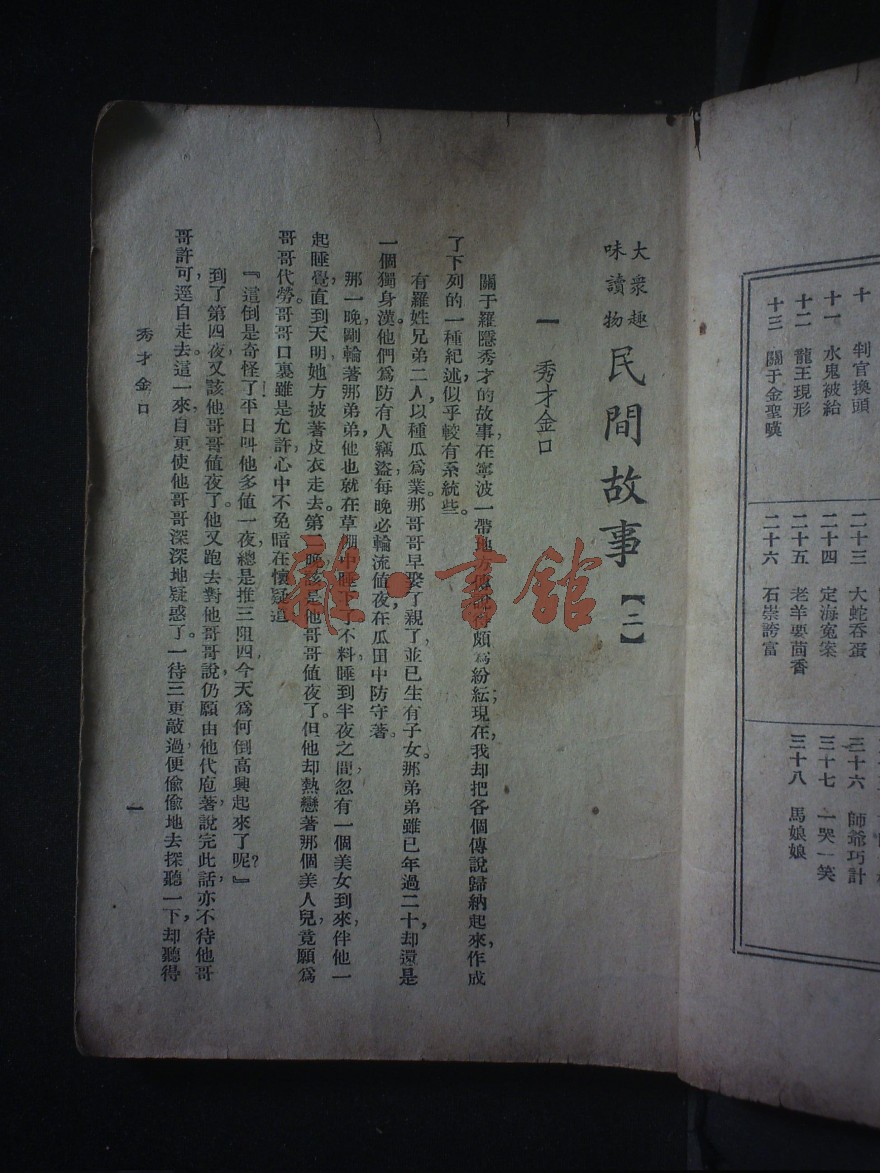 十 判官換頭
十一 水鬼被給
十二 龍王現形
十三 關于金聖嘆
二十三 大蛇吞蛋
二十四 定海寃案
二十五 老羊要茴香
二十六 石崇誇富
三十六 師爺巧計
三十七 一哭一笑
三十八 馬娘娘
大衆趣
味讀物
民間故事【二】
一 秀才金口
關于羅隱秀才的故事，在寧波一帶地方傳說得頗爲紛紜；現在，我却把各個傳說歸納起來，作成
了下列的一種紀述，似乎較有系統些。
有羅姓兄弟二人，以種瓜爲業。那哥哥早娶了親了，並已生有子女。那弟弟雖已年過二十，却還是
一個獨身漢。他們爲防有人竊盜，每晚必輪流值夜，在瓜田中防守著。
那一晚，剛輪著那弟弟，他也就在草棚中睡下了。不料，睡到半夜之間，忽有一個美女到來，伴他一
起睡覺，直到天明，她方披著皮衣走去。第二晚，該是他哥哥值夜了。但他却熱戀著那個美人兒，竟願爲
哥哥代勞。哥哥口裏雖是允許，心中不免暗在懷疑道：
『這倒是奇怪了！平日叫他多值一夜，總是推三阻四，今天爲何倒高興起來了呢？』
到了第四夜，又該他哥哥值夜了。他又跑去對他哥哥說，仍願由他代庖著，說完此話，亦不待他哥
哥許可，逕自走去。這一來，自更使他哥哥深深地疑惑了。一待三更敲過，便偷偷地去探聽一下，却聽得
秀才金口
一
雜·書館